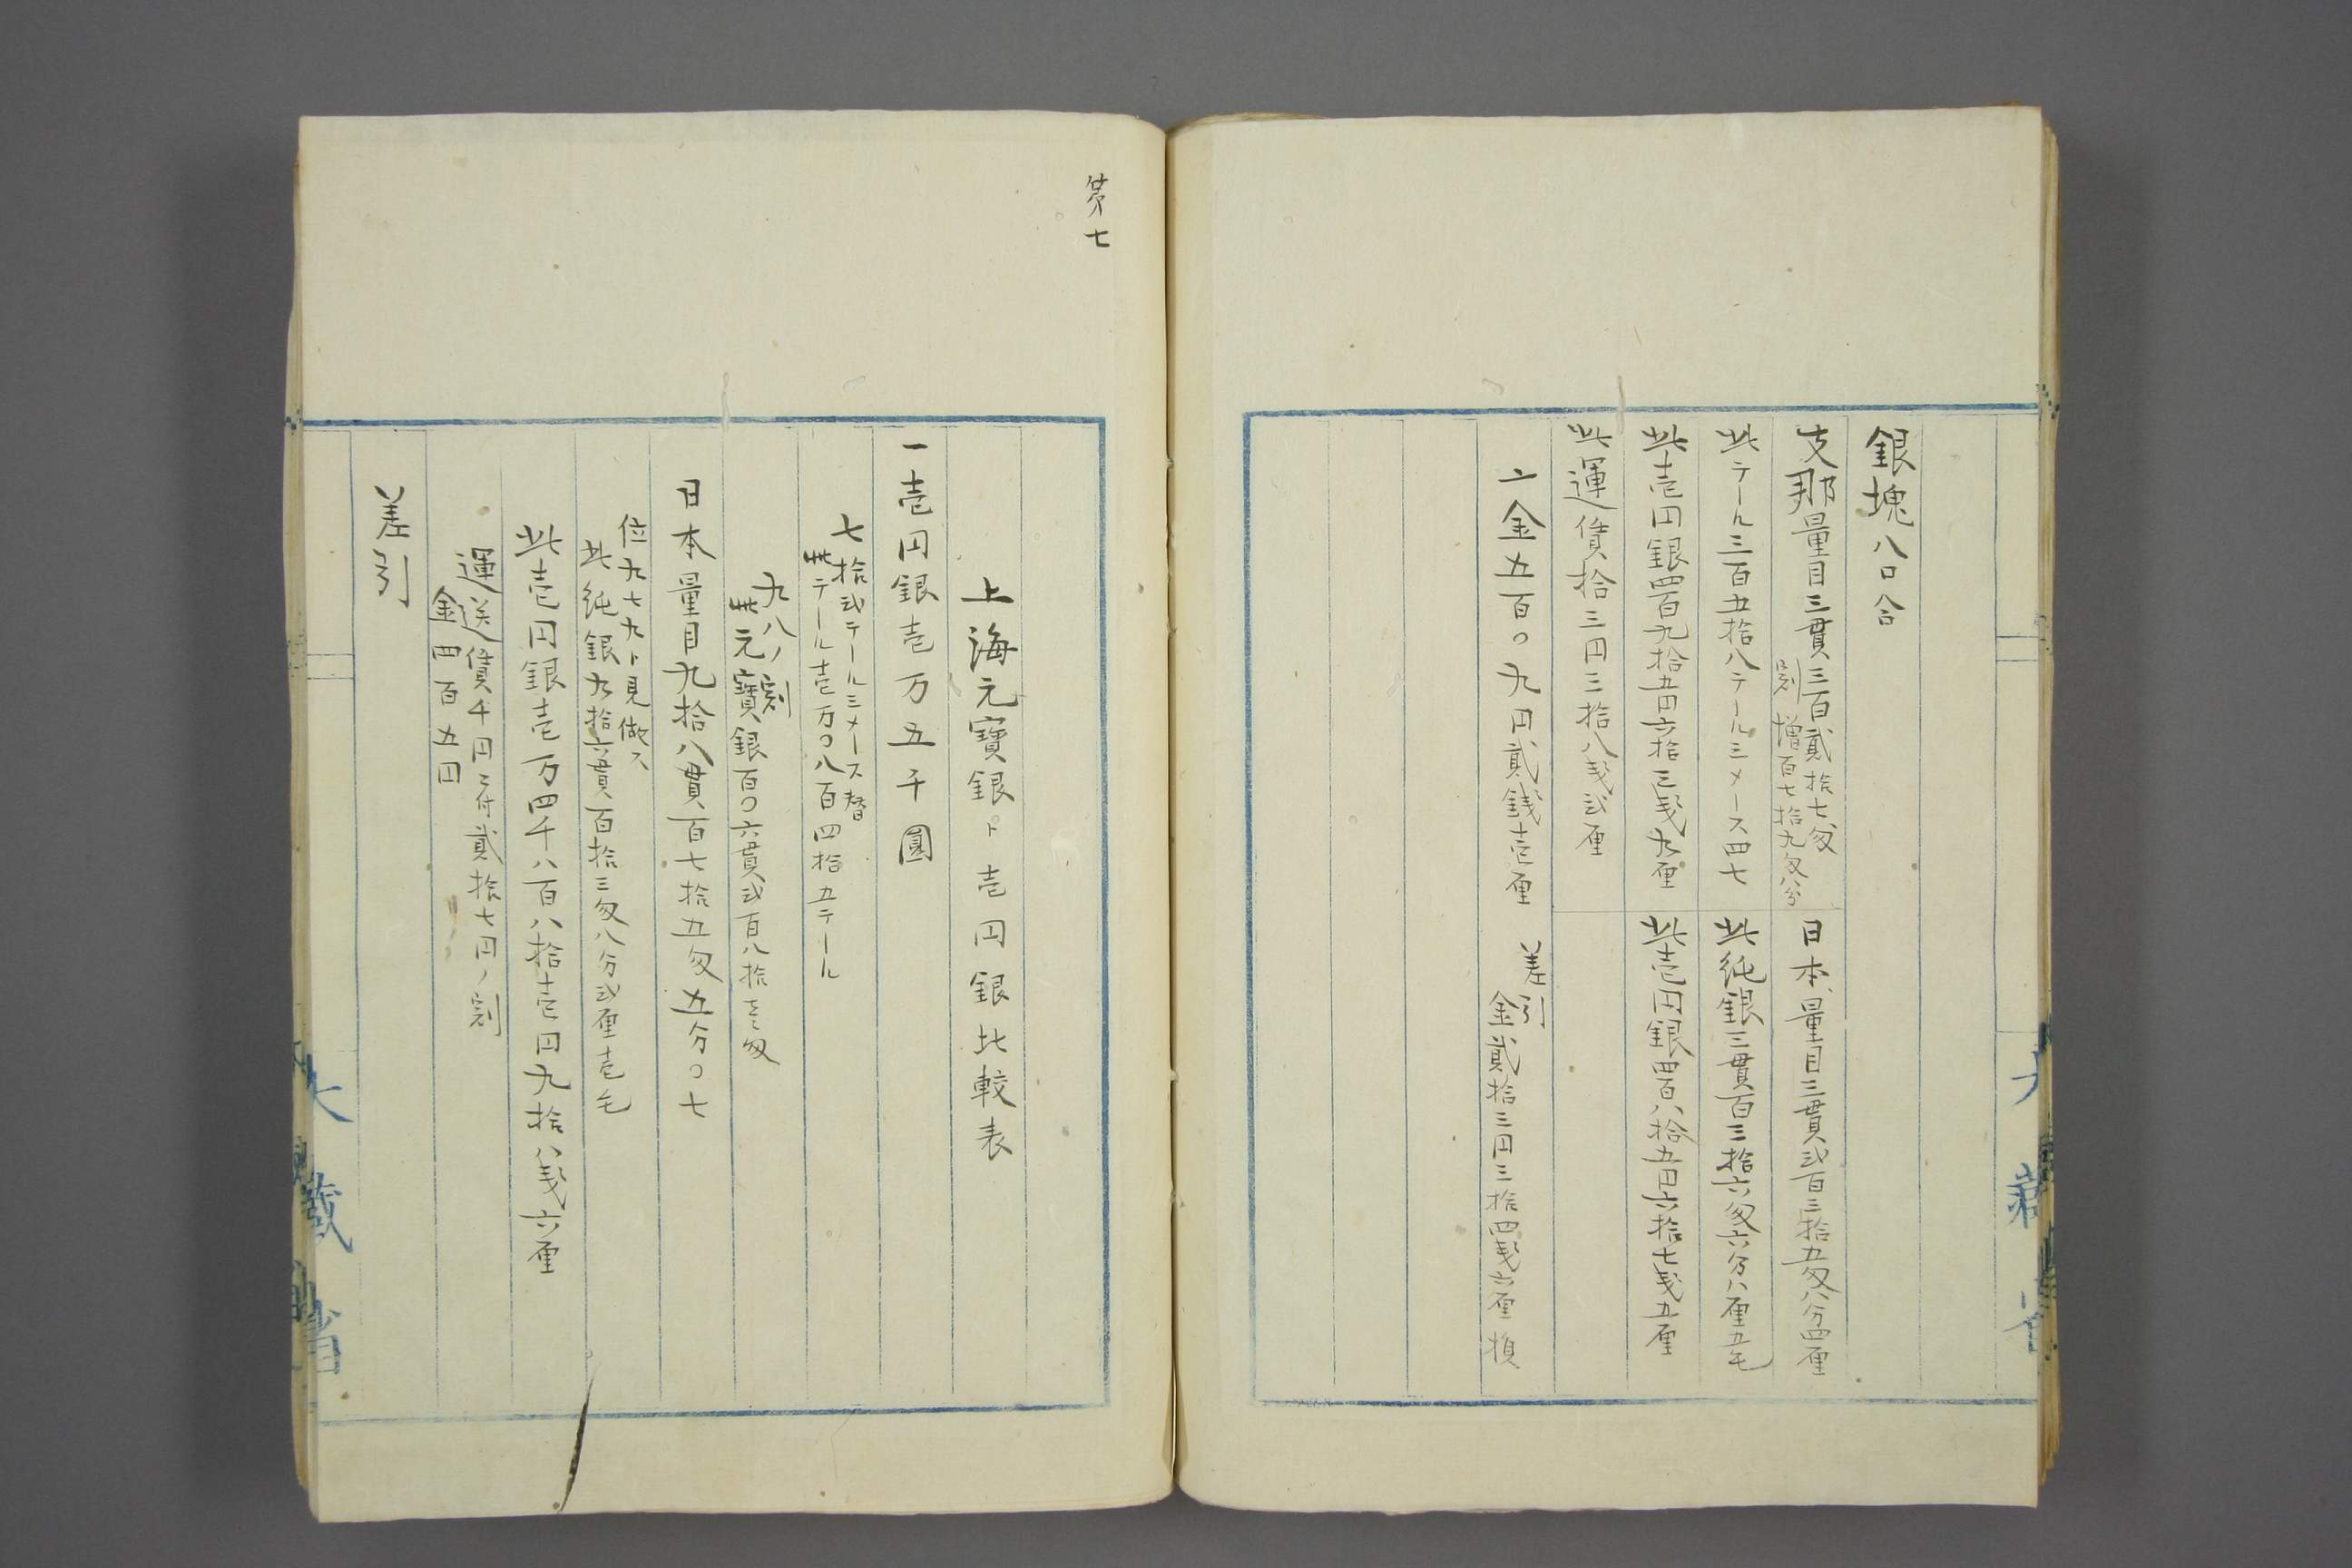 銀塊八口合
支那量目三貫三百貳拾七匁
割増百七拾九匁八分
日本量目三貫弐百三拾五匁八分四厘
此テール三百五拾八テール三メース四七
此純銀三貫百三拾六匁六分八厘五毛
此壱円銀四百九拾五円六拾三戋九厘
此壱円銀四百八拾五円六拾七戋五厘
此運賃拾三円三拾八戋弐厘
〆金五百〇九円貳銭壱厘
差引
金貳拾三円三拾四戋六厘損
大藏省
第七
上海元寶銀ト壱円銀比較表
一壱円銀壱万五千圓
七拾弐テール三メース替
此テール壱万〇八百四拾五テール
九八ノ割
此元寶銀百〇六貫弐百八拾壱匁
日本量目九拾八貫百七拾五匁五分〇七
位九七九ト見做ス
此純銀九拾六貫百拾三匁八分弐厘壱毛
此壱円銀壱万四千八百八拾壱円九拾八戋六厘
運送賃千円ニ付貳拾七円ノ割
金四百五円
差引
大藏省